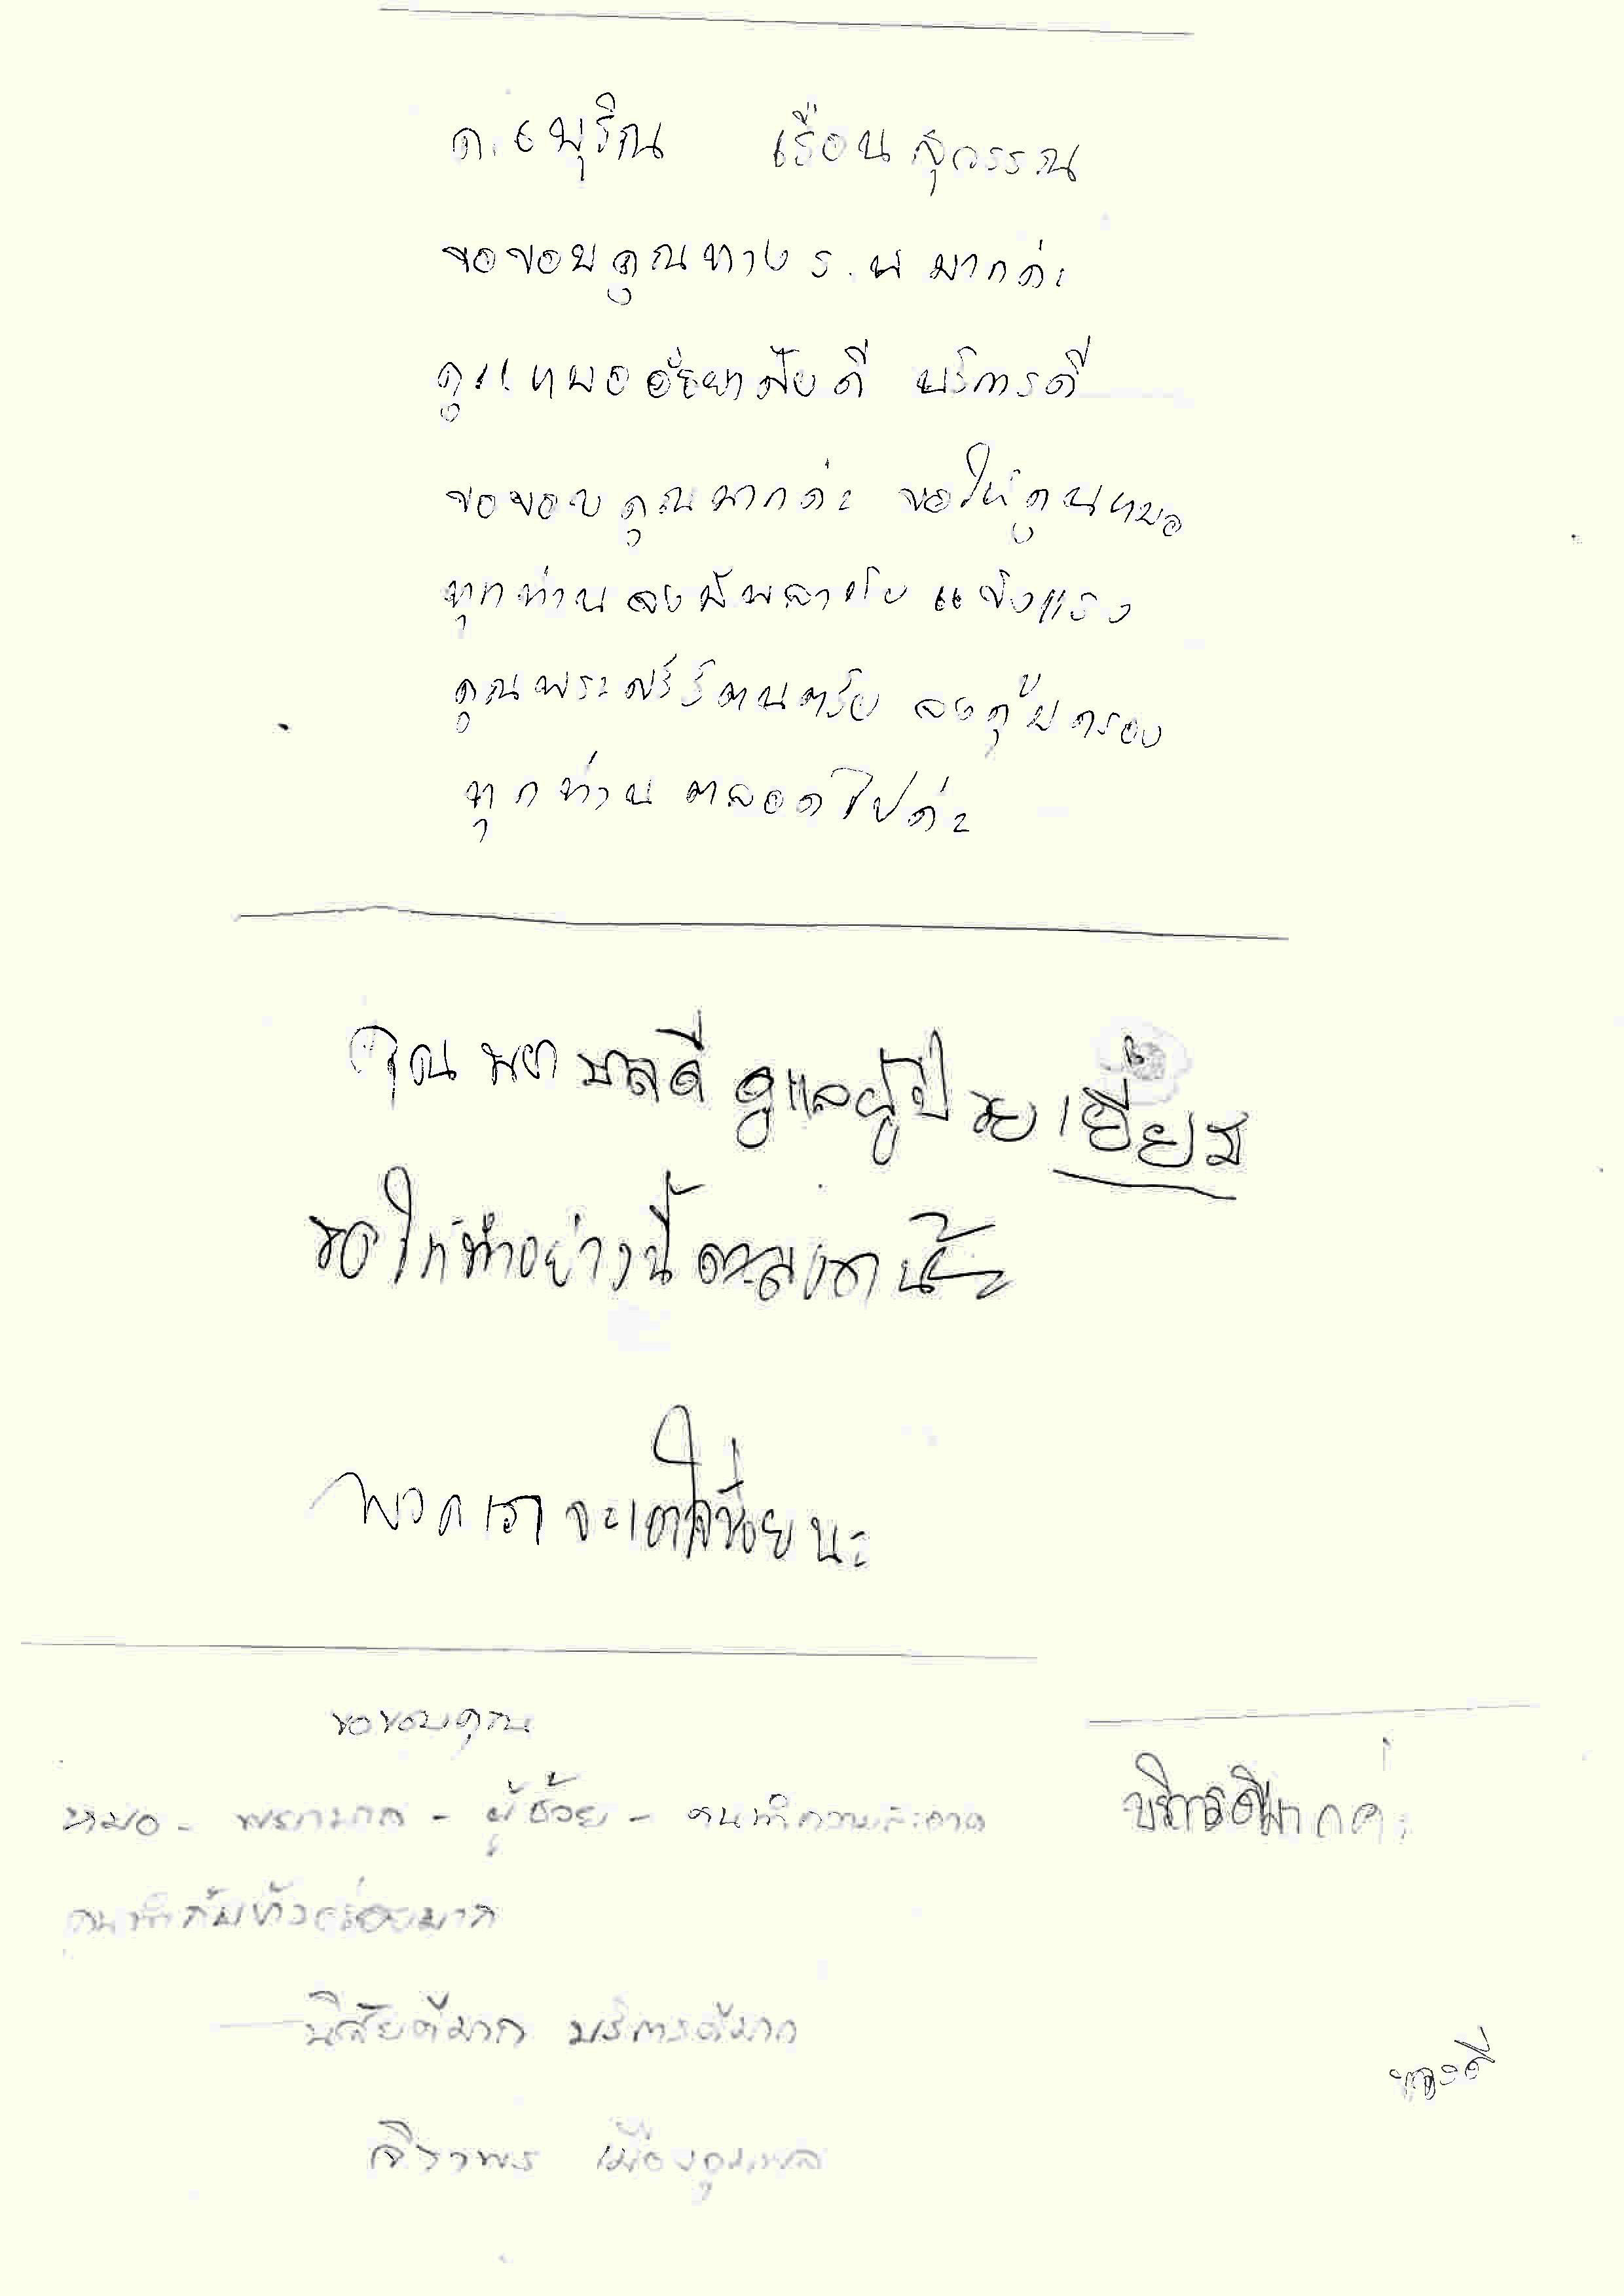 เรือนสุวรรณ
ขอขอบคุณทาง ร.พ มากค่ะ
คุณหมออัธยาศัยดี บริการดี
ขอขอบคุณมากค่ะ ขอให้คุณหมอ
ทุกท่านจงมีพลานัย แข็งแรง
คุณพระศรีรัตนตรัย จงคุ้มครอง
ทุกท่านตลอดไปค่ะ
คุณพยาบาลดี ดูแลผู้ป่วยเยี่ยม
ขอให้ทำอย่างนี้ตลอดน้ะ
พวกเราจะเอาใจช่วยนะ
ขอขอบคุณ
หมอ - พยาบาล - ผู้ช่วย - คนทำความสะอาด
คนทำกับข้าวอร่อยมาก
นิสัยดีมาก บริการดีมาก
จิราพร
บริการดีมากค่ะ